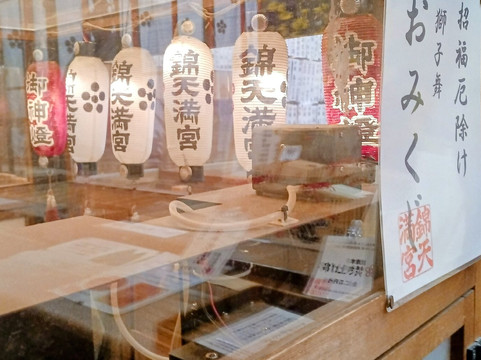 御神燈
錦天満宮
錦天満宮
錦天満宮
錦天満宮
御神燈
招福厄除け
獅子舞
おみくじ
錦天
満宮